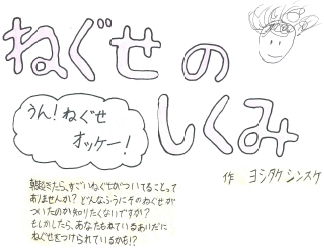 ねぐせの
しくみ
うん！ねぐせ
オッケー！
作 ヨシタケシンスケ
朝起きたら、すごいねぐせがついてることって
ありませんか？どんなふうにそのねぐせが
ついたのか知りたくないですか？
もしかしたら、あなたもねているあいだに
ねぐせをつけられているかも!?